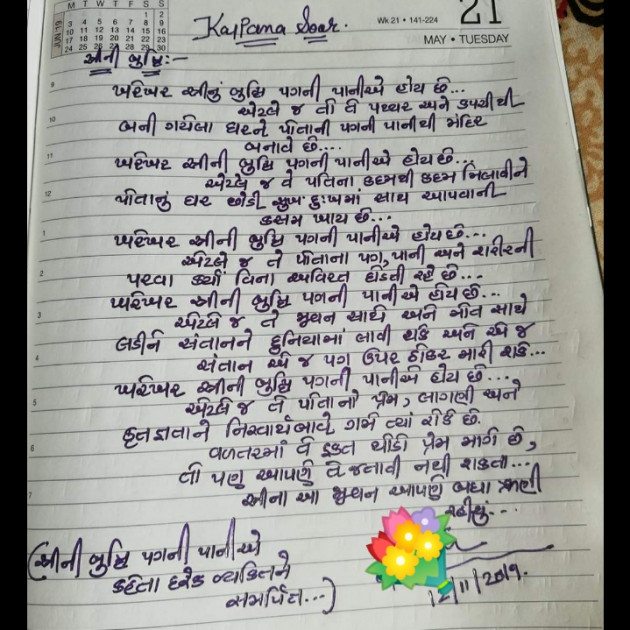 M T W T F S S
1 2
3 4 5 6 7 8 9
10 11 12 13 14 15 16
17 18 19 20 21 22 23
24 25 26 27 28 29 30
JUN 19
Kalpana Soar.
Wk 21 • 141-224
21
MAY • TUESDAY
સ્ત્રીની બુધ્ધિ:-
ખરેખર સ્ત્રીનું બુધ્ધિ પગની પાનીએ હોય છે...
એટલે જ તો તે પથ્થર અને ડફણીથી
બની ગયેલા ઘરને પોતાની પગની પાનીથી મંદિર
બનાવે છે....
ખરેખર સ્ત્રીની બુધ્ધિ પગની પાનીએ હોય છે...
એટલે જ તે પતિના કદમથી કદમ મિલાવીને
પોતાનું ઘર છોડી સુખ દુઃખમાં સાથ આપવાની
કસમ ખાય છે...
ખરેખર સ્ત્રીની બુધ્ધિ પગની પાનીએ હોય છે...
એટલે જ તે પોતાના પગ, પાની અને શરીરની
પરવા કર્યા વિના અવિરત દોડતી રહે છે...
ખરેખર સ્ત્રીની બુધ્ધિ પગની પાનીએ હોય છે...
એટલે જ તે જીવન સાથે અને મોત સાથે
લડીને સંતાનને દુનિયામાં લાવી શકે અને એ જ
સંતાન એ જ પગ ઉપર ઠોકર મારી શકે...
ખરેખર સ્ત્રીની બુધ્ધિ પગની પાનીએ હોય છે...
એટલે જ તે પોતાનો પ્રેમ, લાગણી અને
કૃતજ્ઞતાને નિસ્વાર્થભાવે ગમે ત્યાં રોકે છે.
વળતરમાં તે ફક્ત થોડો પ્રેમ માગે છે,
તો પણ આપણે તે જતાવી નથી શકતા...
સ્ત્રીના આ જીવન આપણે બધા ઋણી
રહીશું...
(સ્ત્રીની બુધ્ધિ પગની પાનીએ
કહેતા દરેક વ્યકિતને
સમર્પિત...)
12/11/2019.
9
10
11
12
1
2
3
4
5
6
7